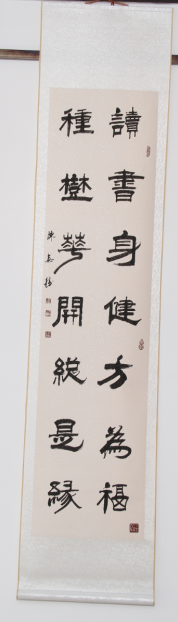 讀書身健方為福
種樹華開總是緣